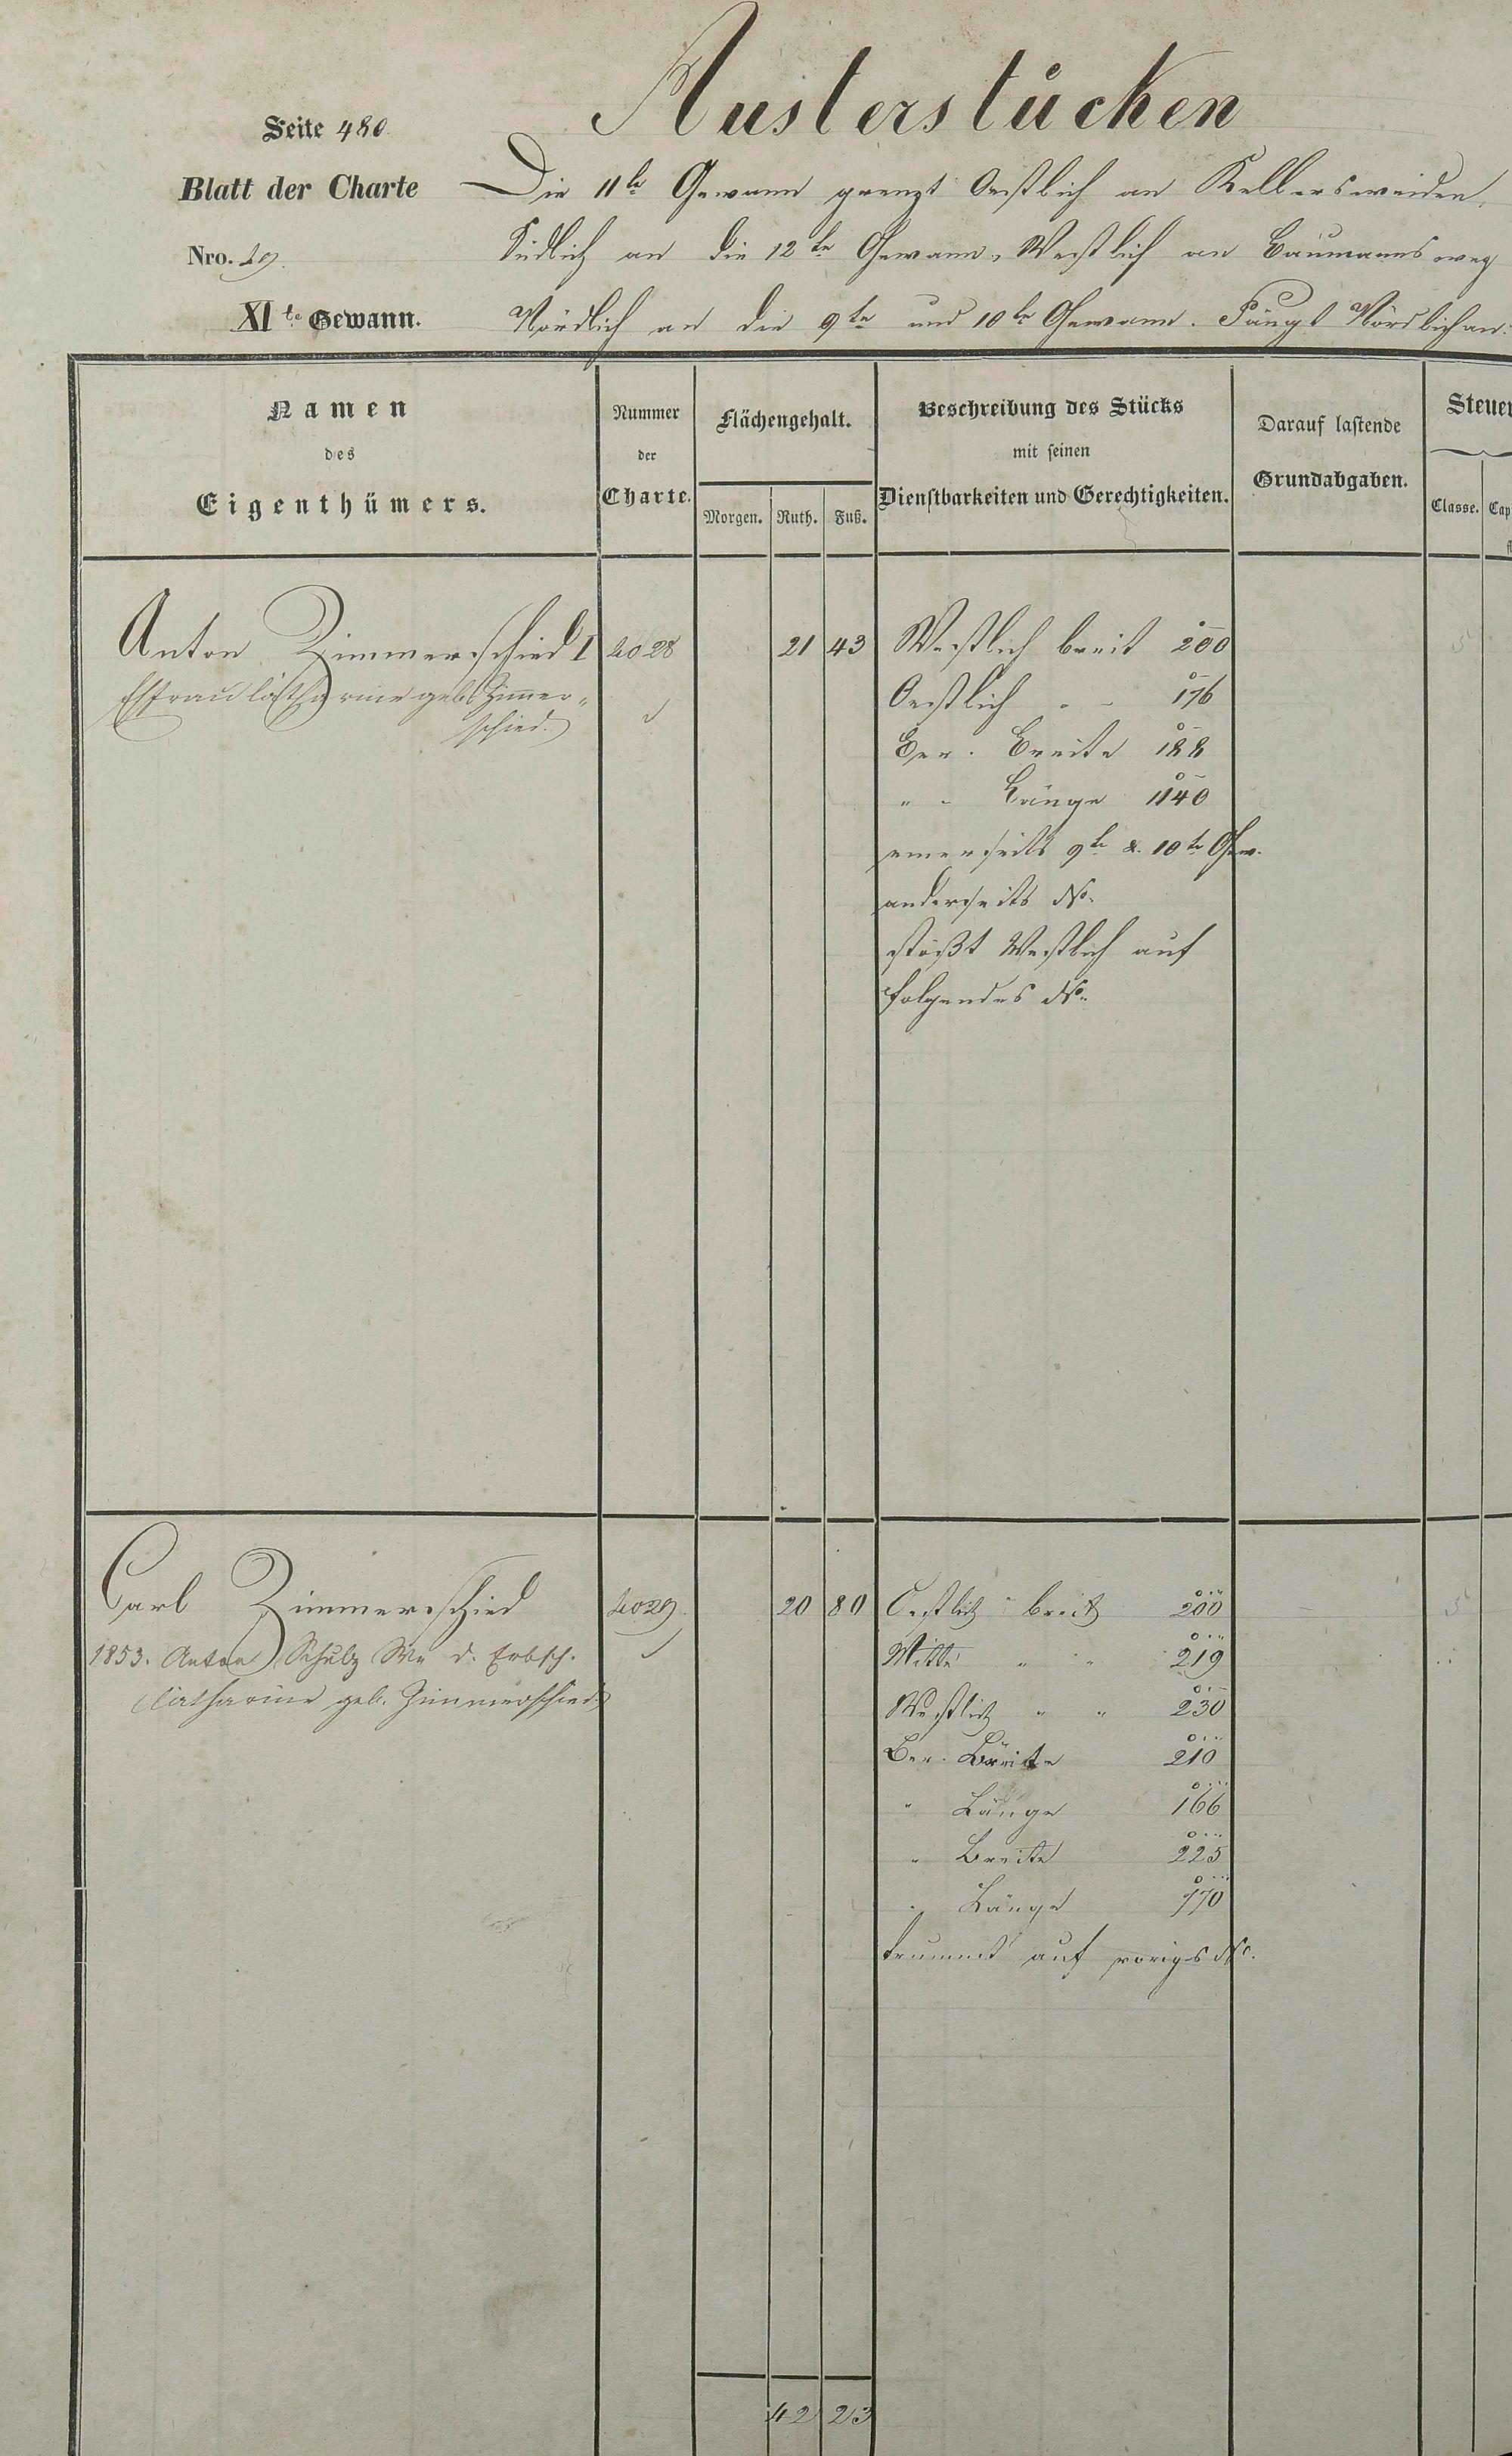 Austerstücken
Seite 480
Blatt der Charte
Nro. 29.
XI te Gewann.
Die 11te Gewann grenzt Oestlich an Kellersweiden,
Südlich an die 12te Gewann, Westlich an Baumanns weg
Nördlich an die 9te und 10te Gewann. Fängt Nördlich an.
Namen
des
Eigenthümers.
Nummer
der
Charte.
Flächengehalt.
Morgen. Ruth. Fuß.
Beschreibung des Stücks
mit seinen
Dienstbarkeiten und Gerechtigkeiten.
Darauf lastende
Grundabgaben.
Steuer
Classe. Cap
Anton Zimmerschied I 4028 21 43 Westlich breit 200
Ehfrau Catharine geb. Zimmer-
schied.
Oestlich " " 176
Ber. Breite 188
" " Länge 1140
einerseits 9te & 10te Gew.
anderseits No.
stößt Westlich auf
folgendes No.
Carl Zimmerschied 4029 20 80 Oestlich breit 200
1853. Anton Schulz d. Erbsch.
Catharine geb. Zimmerschied
Mitte " " 219
Westlich " " 230
Ber. Breite 210
" Länge 166
" Breite 225
" Länge 770
auf voriges No.
42 23